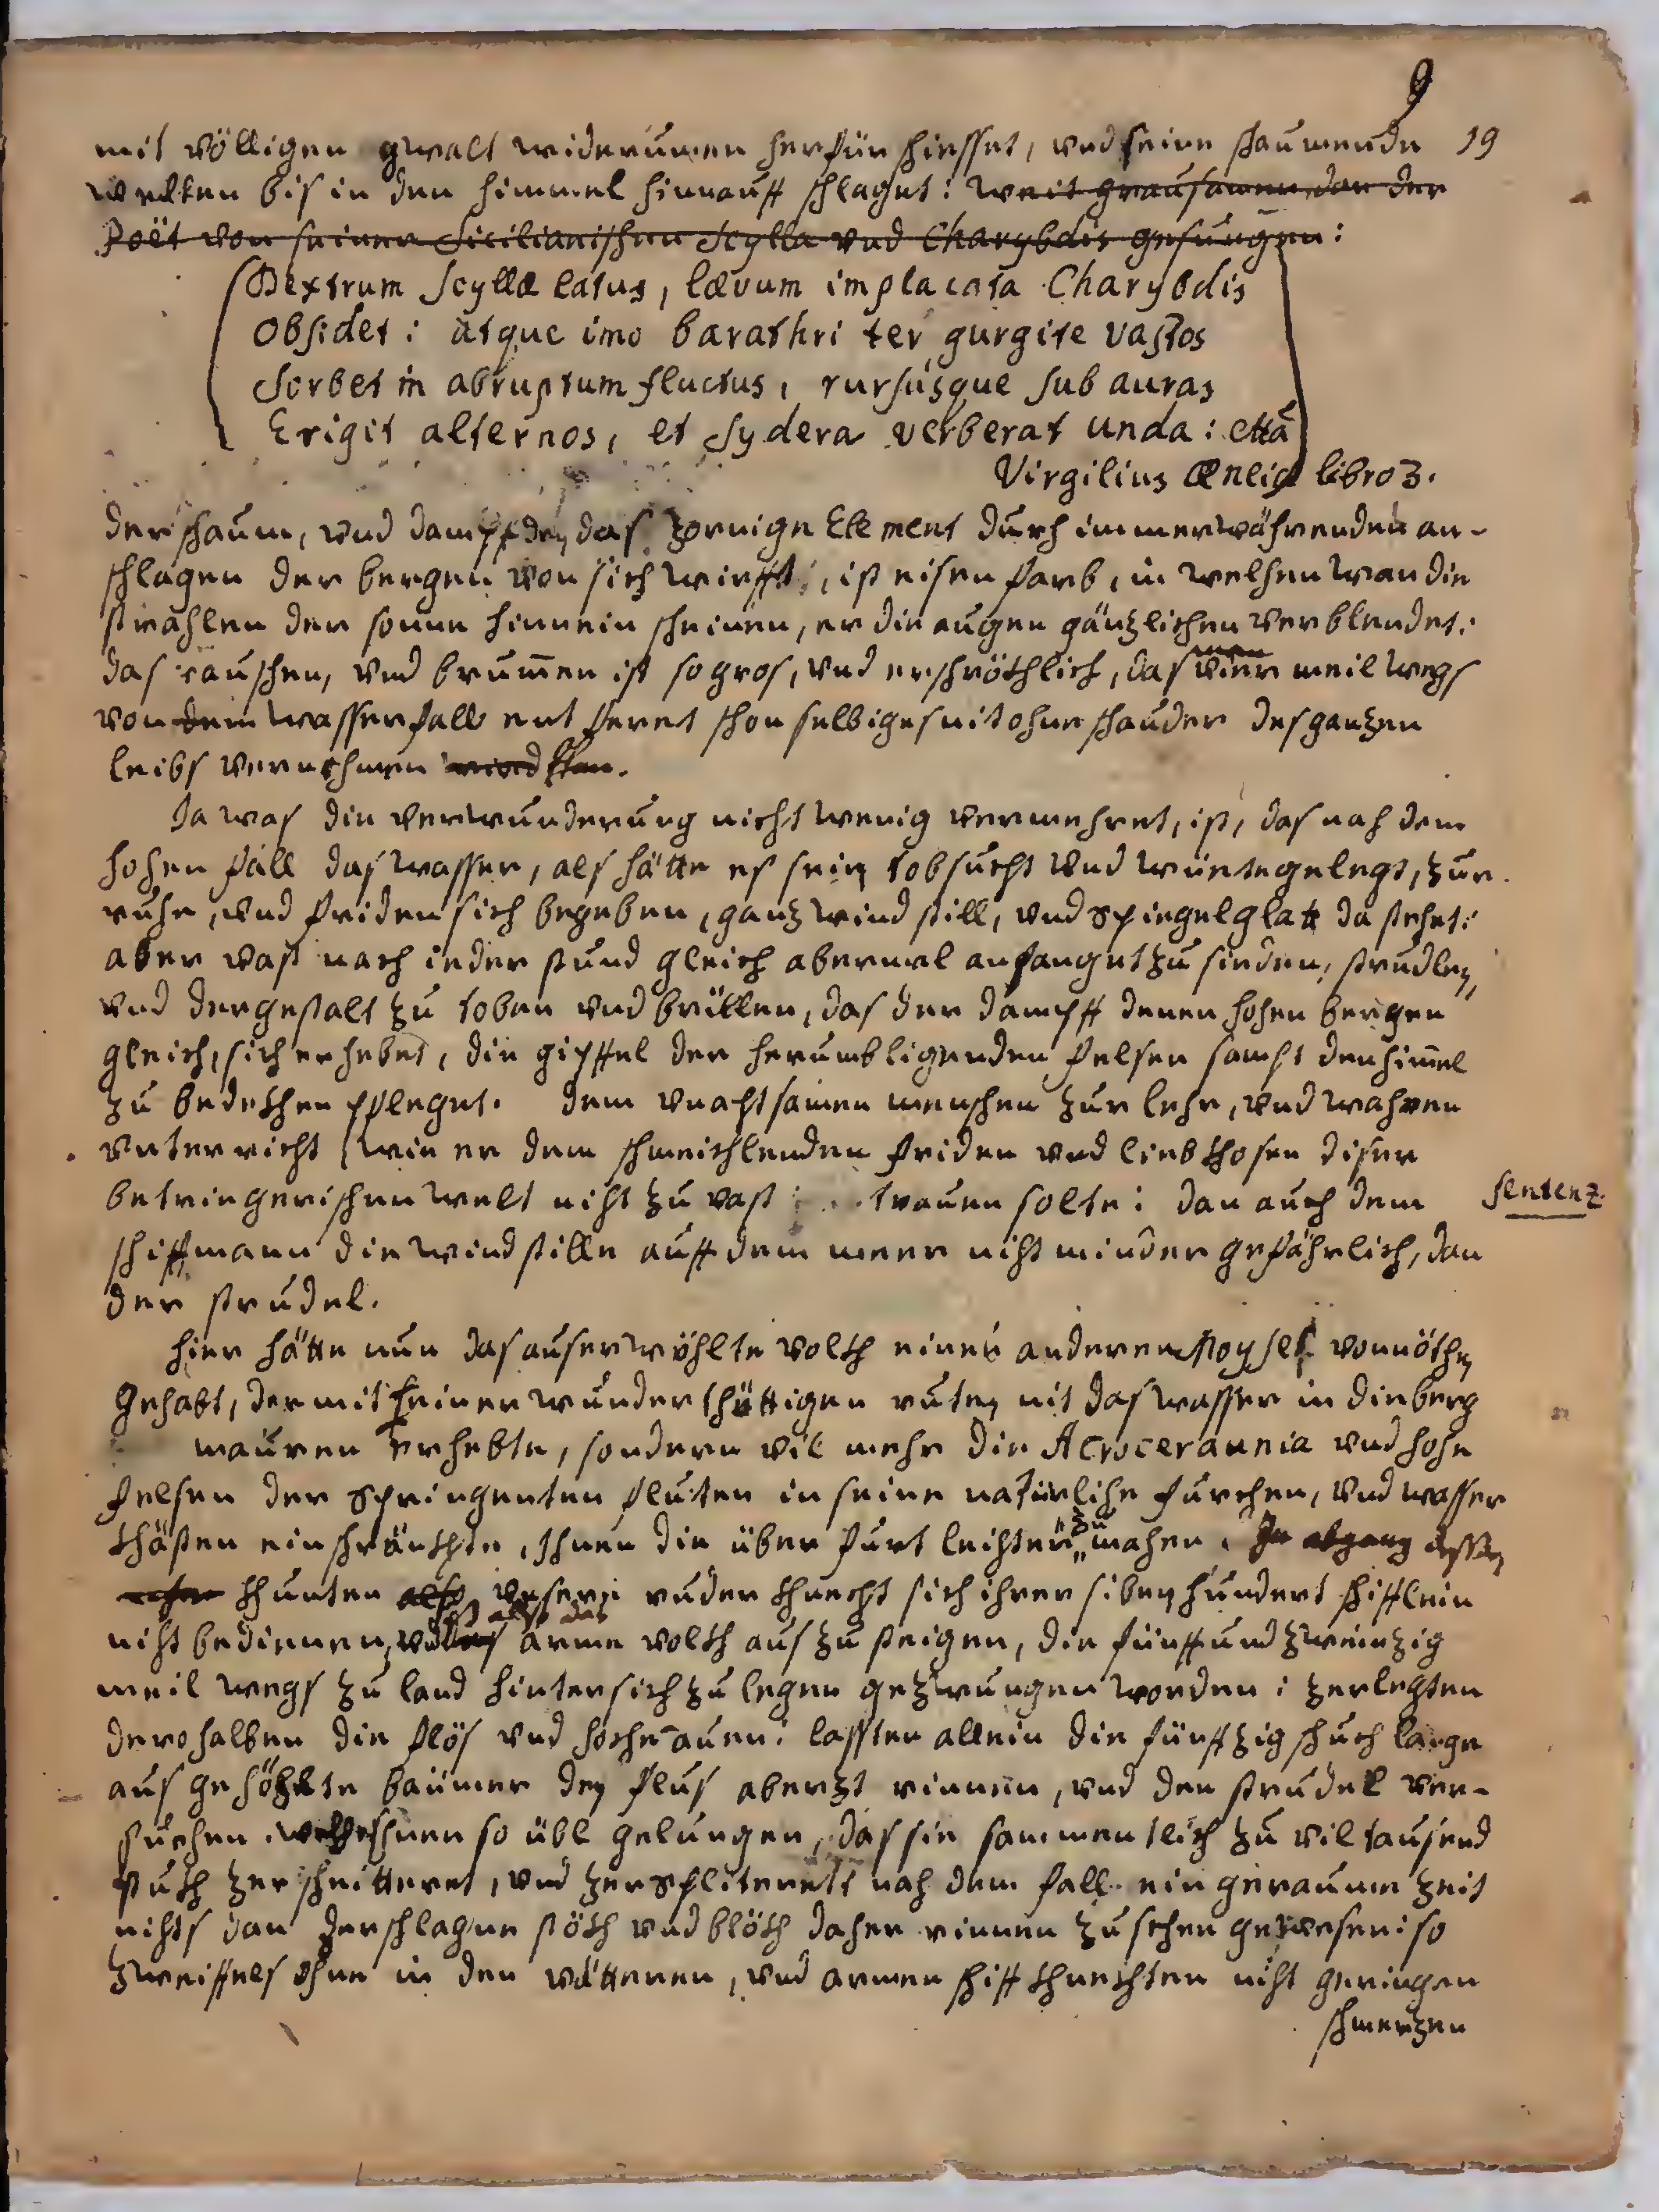 9
mit völligen gwalt widerumen herfür schiesset, vnd seine schaumende 19
wellen bis in den himmel hinnauff schlaget: weit grausamer dan der
Poët von seiner Sicilianischen Scylla vnd Charybdis gesungen:
Dextrum Scyllæ latus, lævum implacata Charybdis
Obsidet: atque imo barathri ter gurgite vastos
Sorbet in abruptum fluctus, rursúsque sub auras
Erigit alternos, et sydera verberat unda: etta
Virgilius Æneid libro 3.
der schaum, vnd dampf den das zornige Element durch immerwährenden an-
schlagen der bergen von sich wirfft, ist eisen farb, in welchen wan die
strahlen der sonne hinnein scheinen, er die augen gäntzlichen verblendet:
das rauschen, vnd brum̄en ist so gros, vnd erschröckhlich, das man vier meil wegs
von dem wasserfall entfernet schon selbiges nit ohne schauder des gantzen
leibs vernehmen kan.
Ja was die verwunderung nicht wenig vermehret, ist, das nach dem
hohen fall das wasser, als hätte es sein tobsucht vnd wüette gelegt, zur
ruhe, vnd friden sich begeben, gantz wind still, vnd spiegelglatt da stehet:
aber vast nach ieder stund gleich abermal anfanget zu sieden, strudlen,
vnd dergestalt zu toben vnd brüllen, das der dampff denen hohen bergen
gleich, sich erhebet, die gipffel der herumbligenden felsen sambt den him̄el
zu bedekhen pfleget. dem vnachtsamen menschen zur lehr, vnd wahren
vnterricht wie er dem schmeichlenden friden vnd liebkhosen diser
betriegerischen welt nicht zu vast trauen solte: dan auch dem sentenz.
schiffmann die windstille auff dem meer nicht minder gefährlich, dan
der strudel.
hier hätte nun das auserwöhlte volckh einen anderen Moyses vonnöthen
gehabt, der mit seiner wunderthättigen ruten nit das wasser in die berg
mauren erhebte, sondern vil mehr die Acroceraunia vnd hohe
felsen der springenten fluten in seine natürliche furchen, vnd wasser
khästen einschränckhte, ihnen die überfurt leichter zu machen. In abgang dessen
khunten also vnsere ruder khnecht sich ihrer siben hundert schifflein
nicht bedienen, vnd ist also das arme volckh aus zu steigen, die fünff und zweintzig
meil wegs zu land hinter sich zu legen gezwungen worden: zerlegten
derohalben die flös vnd lassten allein die fünfftzig schuch lange
ausgehöhlte baümer den flus abertzt rinnen, vnd den strudel ver-
suchen. welches ihnen so übl gelungen, das sie sammentlich zu vil tausend
stuckh zerschnitteret, vnd zerspliteret nach dem fall ein geraume zeit
nichts dan zerschlagne stöckh vnd blöckh daher rinnen zu sehen gewesen: so
zweiffels ohne in den vätteren, vnd armen schiffkhnechten nicht geringen
schmertzen